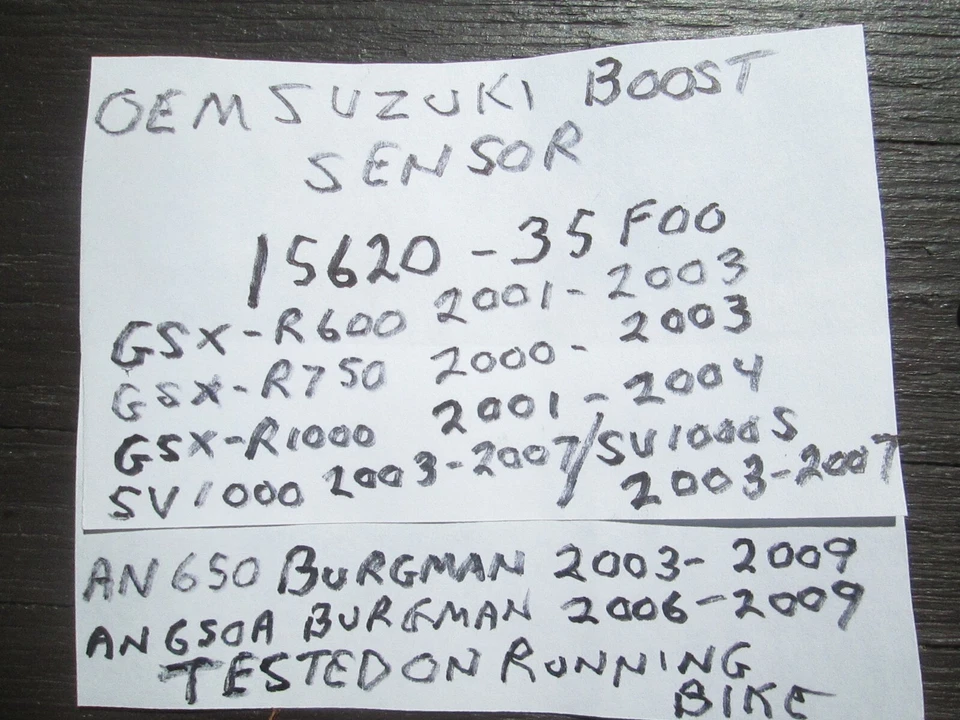 OEM SUZUKI BOOST
SENSOR
15620-35F00
GSX-R600 2001-2003
GSX-R750 2000-2003
GSX-R1000 2001-2004
SV1000 2003-2007/SV1000S
2003-2007
AN650 BURGMAN 2003-2009
AN650A BURGMAN 2006-2009
TESTED ON RUNNING
BIKE